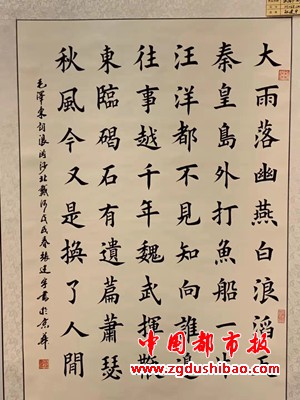 大雨落幽燕白浪滔天
秦皇島外打魚船一片
汪洋都不見知向誰邊
往事越千年魏武揮鞭
東臨碣石有遺篇蕭瑟
秋風今又是換了人閒
毛澤東詞浪淘沙北戴河戊戌春張書於京華
中國都市报
www.zgdushibao.com